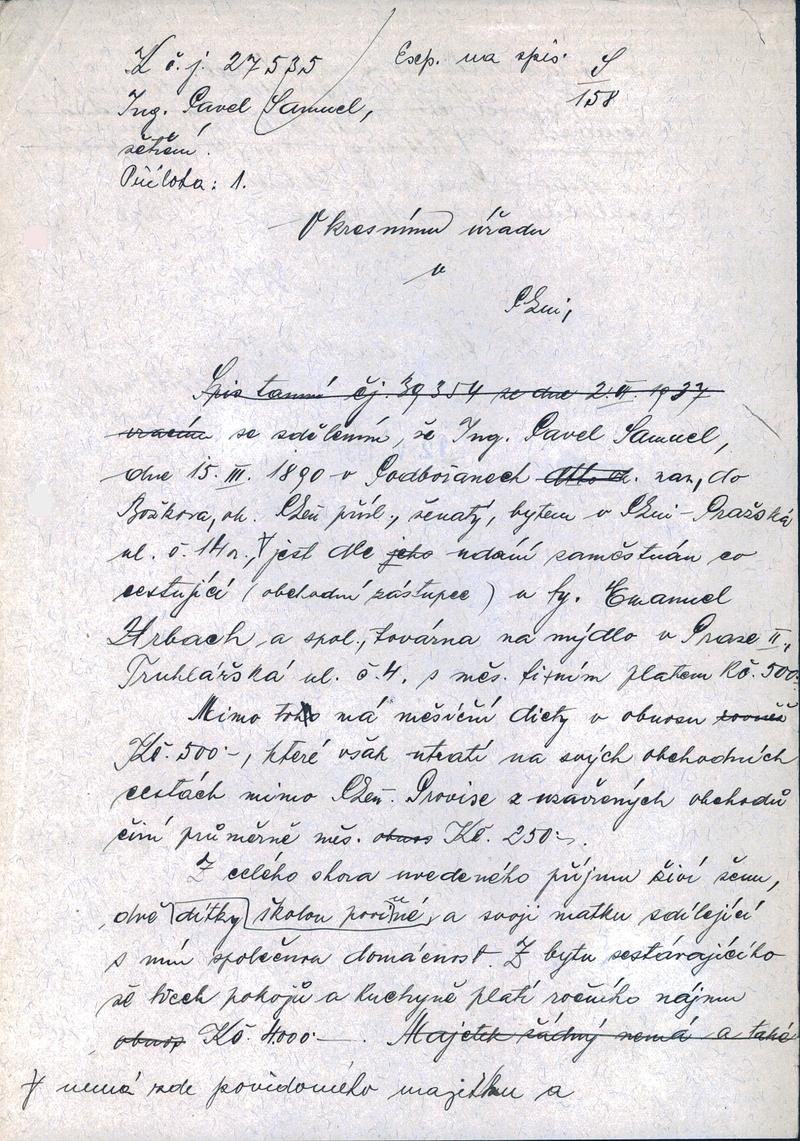 K č. j. 27535 Exp. na spis. S/158
Ing. Pavel Samuel,
šetření.
Příloha: 1.
Okresnímu úřadu
v
Plzni,
Spis tamní čj. 39354 ze dne 2. 1937
vracím se sdělením, že Ing. Pavel Samuel,
dne 15. III. 1890 v Podbořanech nar., do
Boškova, ok. Plzeň přísl., ženatý, bytem v Plzni-Pražská
ul. č. 14n., ꝉ jest dle jeho udání zaměstnán co
cestující (obchodní zástupce) u fy. Emanuel
Hrbach a spol., továrna na mýdlo v Praze II.,
Truhlářská ul. č. 4. s měs. fixním platem Kč. 500.
Mimo toho má měsíční diety v obnosu rovněž
Kč. 500.-, které však utratí na svých obchodních
cestách mimo Plzeň. Provise z uzavřených obchodů
činí průměrně měs. obnos Kč. 250.-.
Z celého shora uvedeného příjmu živí ženu,
dvě dítky školou povinné, a svoji matku sdílející
s ním společnou domácnost. Z bytu sestávajícího
ze třech pokojů a kuchyně platí ročního nájmu
obnos Kč. 4000.-. Majetek žádný nemá a také
ꝉ nemá zde povědomého majetku a